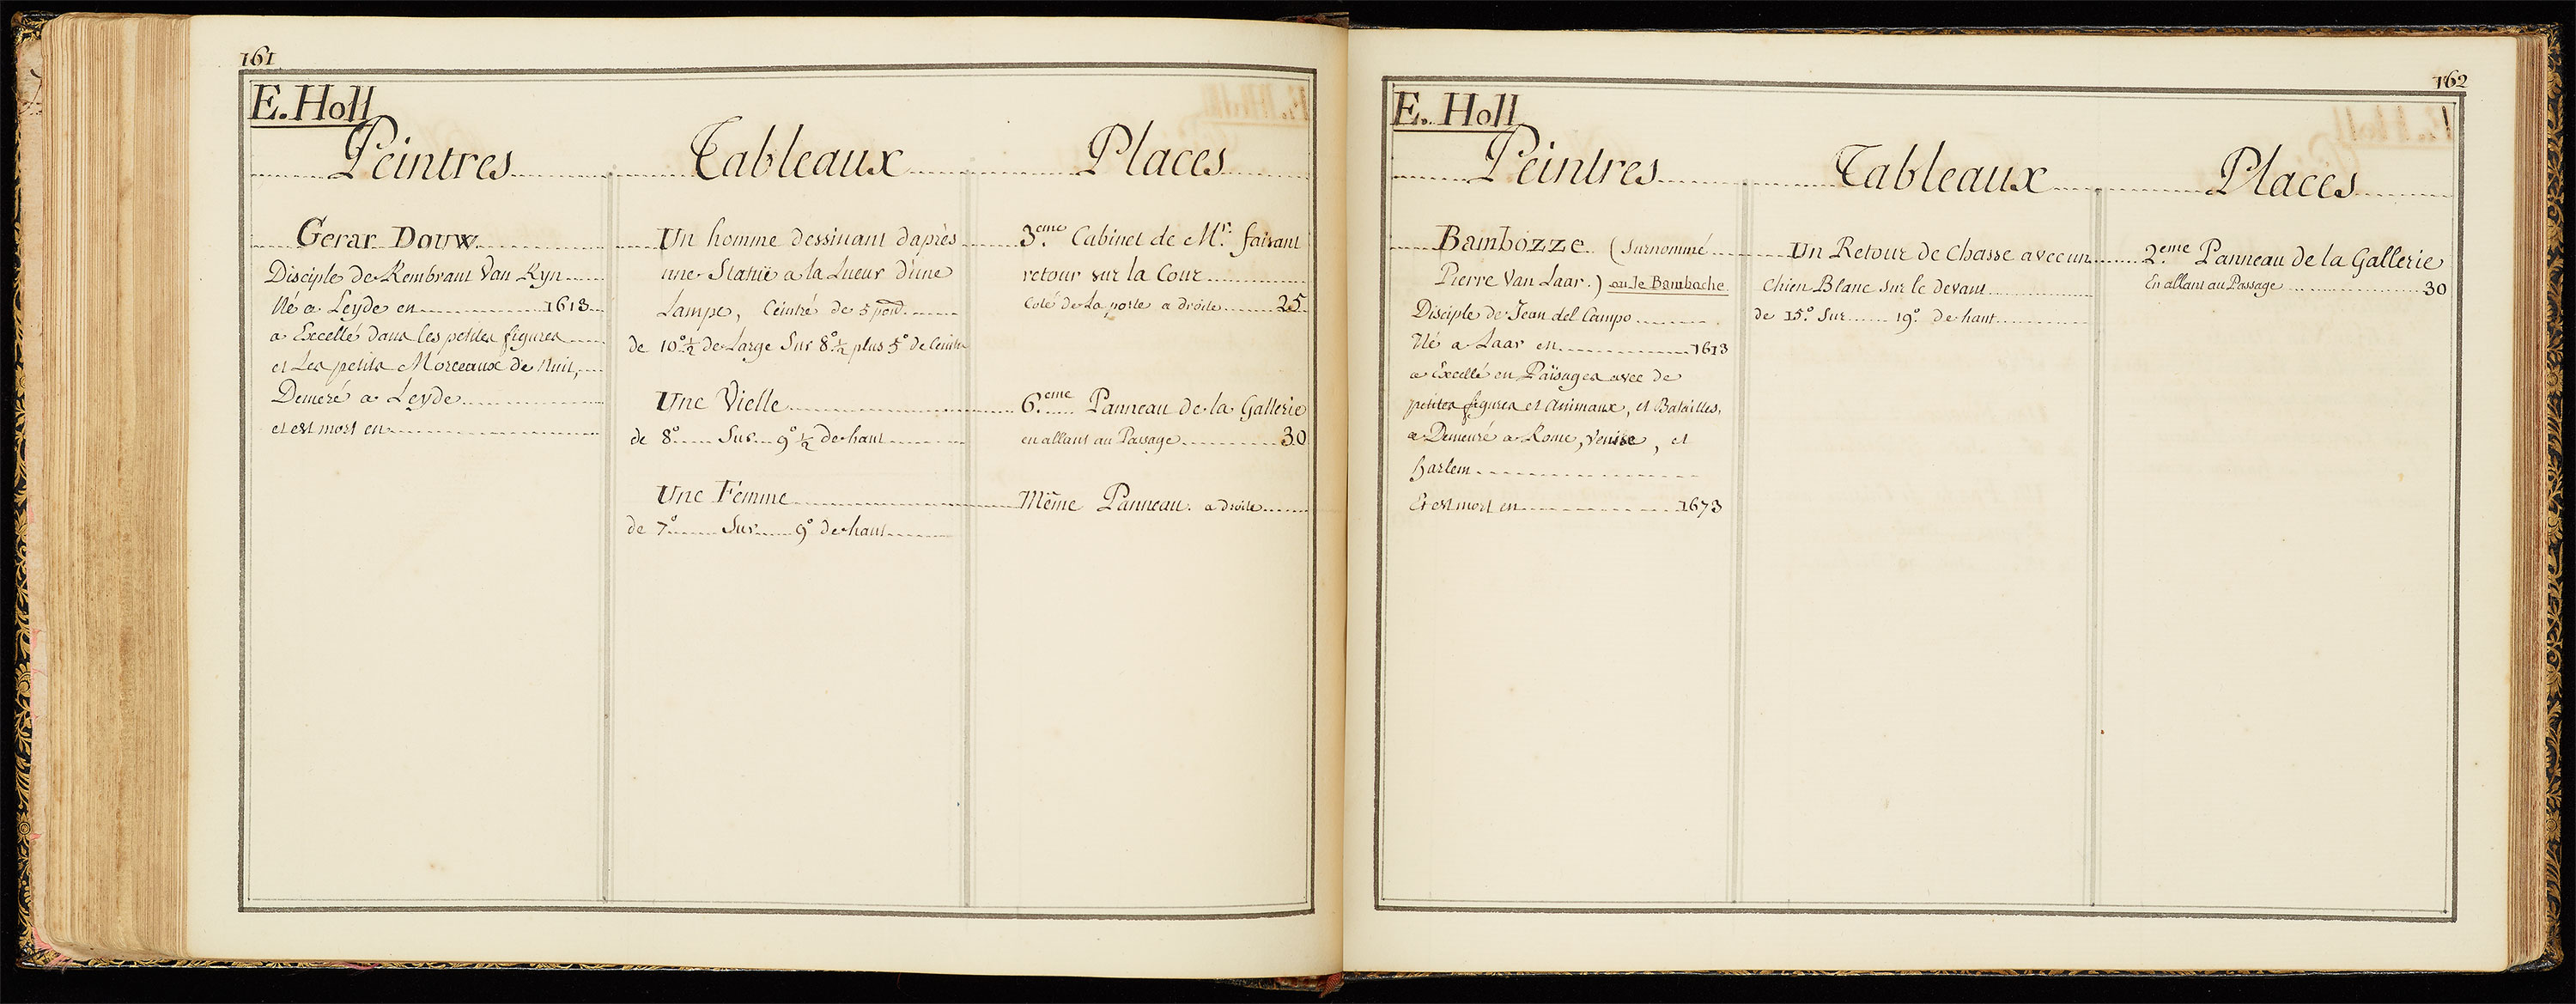 161
E. Holl
Peintres Tableaux Places
Gerar Douw
Disciple de Rembrant Van Ryn
Né a Leyde en 1613
a Excellé dans les petites figures
et Les petits Morceaux de Nuit,
Demeré a Leyde
et est mort en
Un homme dessinant daprès
une Statüe a la Lueur d'une
Lampe, Ceintré de 5 po
de 10° ½ de Large Sur 8° ½ plus 5° de Ceintre
Une Vielle
de 8° Sur 9° ½ de haut
Une Femme
de 7° Sur 9° de haut
3.eme Cabinet de Mr. faisant
retour sur la Cour
Coté de La porte a droite 25
6.eme Panneau de la Gallerie
en allant au Passage 30
Même Panneau. a droite
162
E. Holl
Peintres Tableaux Places
Bambozze (Surnommé
Pierre Van Laar.) ou le Bamboche
Disciple de Jean del Campo
Né a Laar en 1613
a Excellé en Païsages avec de
petites figures et Animaux, et Batailles,
a Demeuré a Rome, Venise, et
harlem
Et est mort en 1673
Un Retour de Chasse avec un
Chien Blanc Sur le devant
de 15° Sur 19° de haut
2.eme Panneau de la Gallerie
En allant au Passage 30